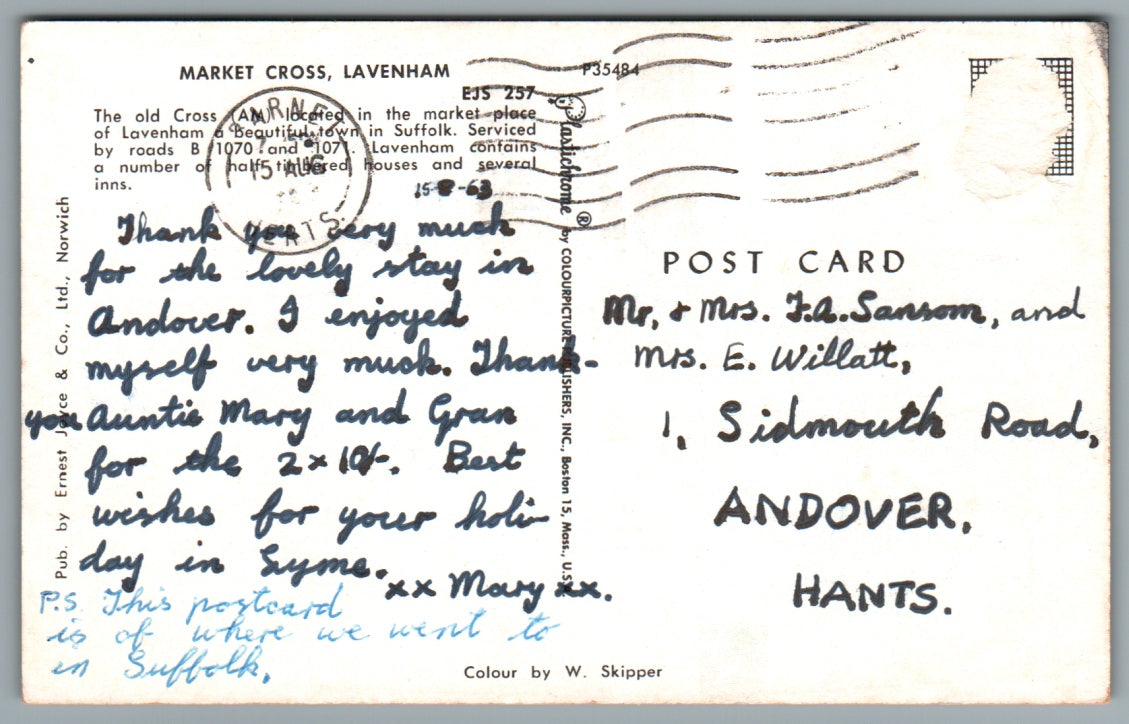 MARKET CROSS, LAVENHAM
P35484
EJS 257
The old Cross (AM) located in the market place
of Lavenham a beautiful town in Suffolk. Serviced
by roads B 1070 and 1071. Lavenham contains
a number of half-timbered houses and several
inns.
BARNET
15 AUG
HERTS.
15-8-63
Thank you very much
for the lovely stay in
Andover. I enjoyed
myself very much. Thank-
you Auntie Mary and Gran
for the 2 x 10/-. Best
wishes for your holi-
day in Lyme.
xx Mary xx.
P.S. This postcard
is of where we went to
in Suffolk.
Pub. by Ernest Joyce & Co., Ltd., Norwich
Plastichrome ® by COLOURPICTURE PUBLISHERS, INC., Boston 15, Mass., U.S.
POST CARD
Mr. & Mrs. F.A. Sansom, and
Mrs. E. Willatt,
1, Sidmouth Road,
ANDOVER,
HANTS.
Colour by W. Skipper